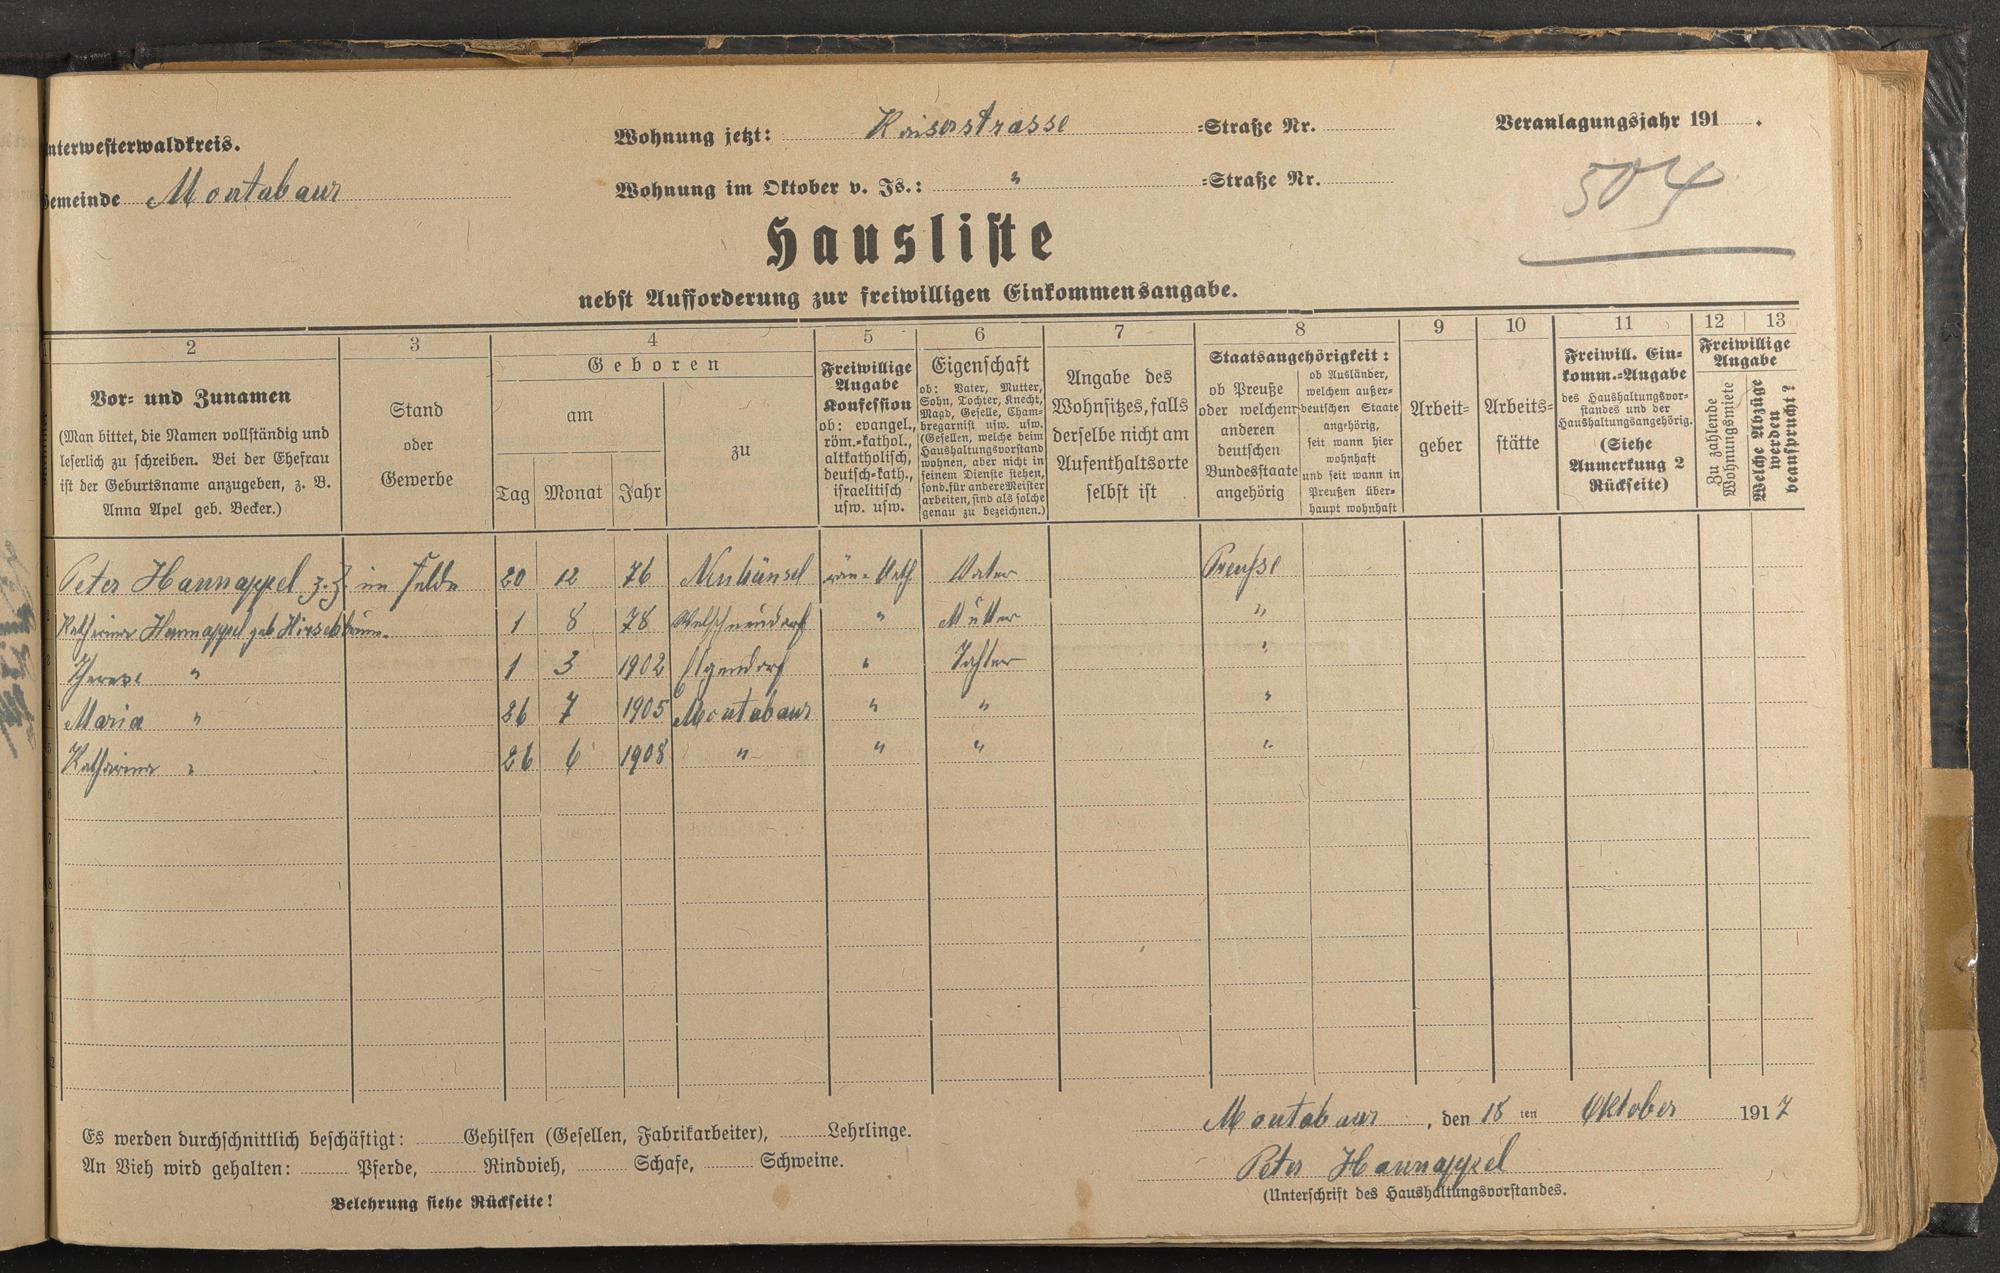 nterwesterwaldkreis.
Wohnung jetzt: Kaiserstrasse =Straße Nr.
Veranlagungsjahr 191 .
emeinde Montabaur
Wohnung im Oktober v. Js.: " =Straße Nr.
504
Hausliste
nebst Aufforderung zur freiwilligen Einkommensangabe.
2 3 4 5 6 7 8 9 10 11 12 13
Vor- und Zunamen
(Man bittet, die Namen vollständig und
leserlich zu schreiben. Bei der Ehefrau
ist der Geburtsname anzugeben, z. B.
Anna Apel geb. Becker.)
Stand
oder
Gewerbe
Geboren
am
Tag Monat Jahr
zu
Freiwillige
Angabe
Konfession
ob: evangel.,
röm.-kathol.,
altkatholisch,
deutsch-kath.,
israelitisch
usw. usw.
Eigenschaft
ob: Vater, Mutter,
Sohn, Tochter, Knecht,
Magd, Geselle, Cham-
bregarnist usw. usw.
(Gesellen, welche beim
Haushaltungsvorstand
wohnen, aber nicht in
seinem Dienste stehen,
sond. für andere Meister
arbeiten, sind als solche
genau zu bezeichnen.)
Angabe des
Wohnsitzes, falls
derselbe nicht am
Aufenthaltsorte
selbst ist
Staatsangehörigkeit:
ob Preuße
oder welchem
anderen
deutschen
Bundesstaate
angehörig
ob Ausländer,
welchem außer-
deutschen Staate
angehörig,
seit wann hier
wohnhaft
und seit wann in
Preußen über-
haupt wohnhaft
Arbeit-
geber
Arbeits-
stätte
Freiwill. Ein-
komm.-Angabe
des Haushaltungsvor-
standes und der
Haushaltungsangehörig.
(Siehe
Anmerkung 2
Rückseite)
Freiwillige
Angabe
Zu zahlende
Wohnungsmiete
Welche Abzüge
werden
beansprucht?
1 Peter Hannappel z. Z. im Felde 20 12 76 Neuhäusel röm.-kath. Vater Preusse
2 Katharina Hannappel geb. 1 8 78 Welschneudorf " Mutter "
3 Therese " 1 3 1902 Elgendorf " Tochter "
4 Maria " 26 7 1905 Montabaur " " "
5 Katharina " 26 6 1908 " " " "
6
7
8
9
10
11
12
Es werden durchschnittlich beschäftigt: Gehilfen (Gesellen, Fabrikarbeiter), Lehrlinge.
An Vieh wird gehalten: Pferde, Rindvieh, Schafe, Schweine.
Belehrung siehe Rückseite!
Montabaur, den 18ten Oktober 1917
Peter Hannappel
(Unterschrift des Haushaltungsvorstandes.